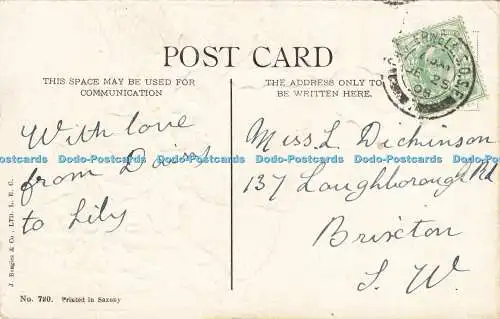 POST CARD
THIS SPACE MAY BE USED FOR
COMMUNICATION
THE ADDRESS ONLY TO
BE WRITTEN HERE.
With love
from Daisy
to Lily
Miss L Dickinson
137 Loughborough Rd
Brixton
S. W.
Dodo-Postcards Dodo-Postcards Dodo-Postcards Dodo-Postcards Dodo-Postcards
J. Beagles & Co., LTD. E.C.
No. 720. Printed in Saxony